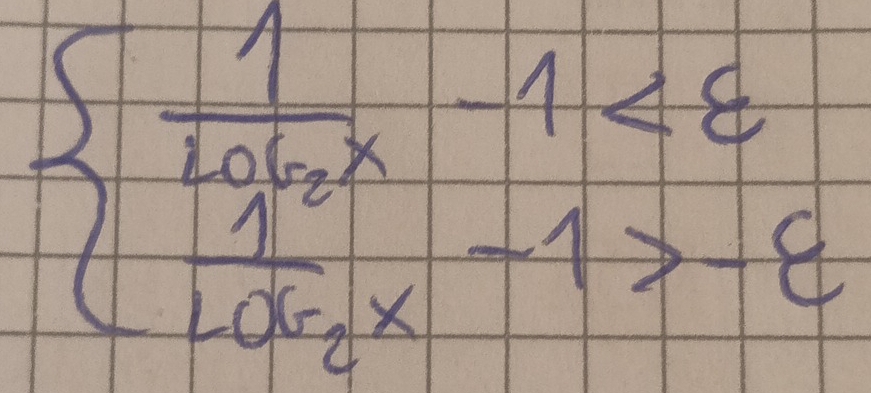 1/LOG₂X -1 < ε
1/LOG₂X -1 > -ε